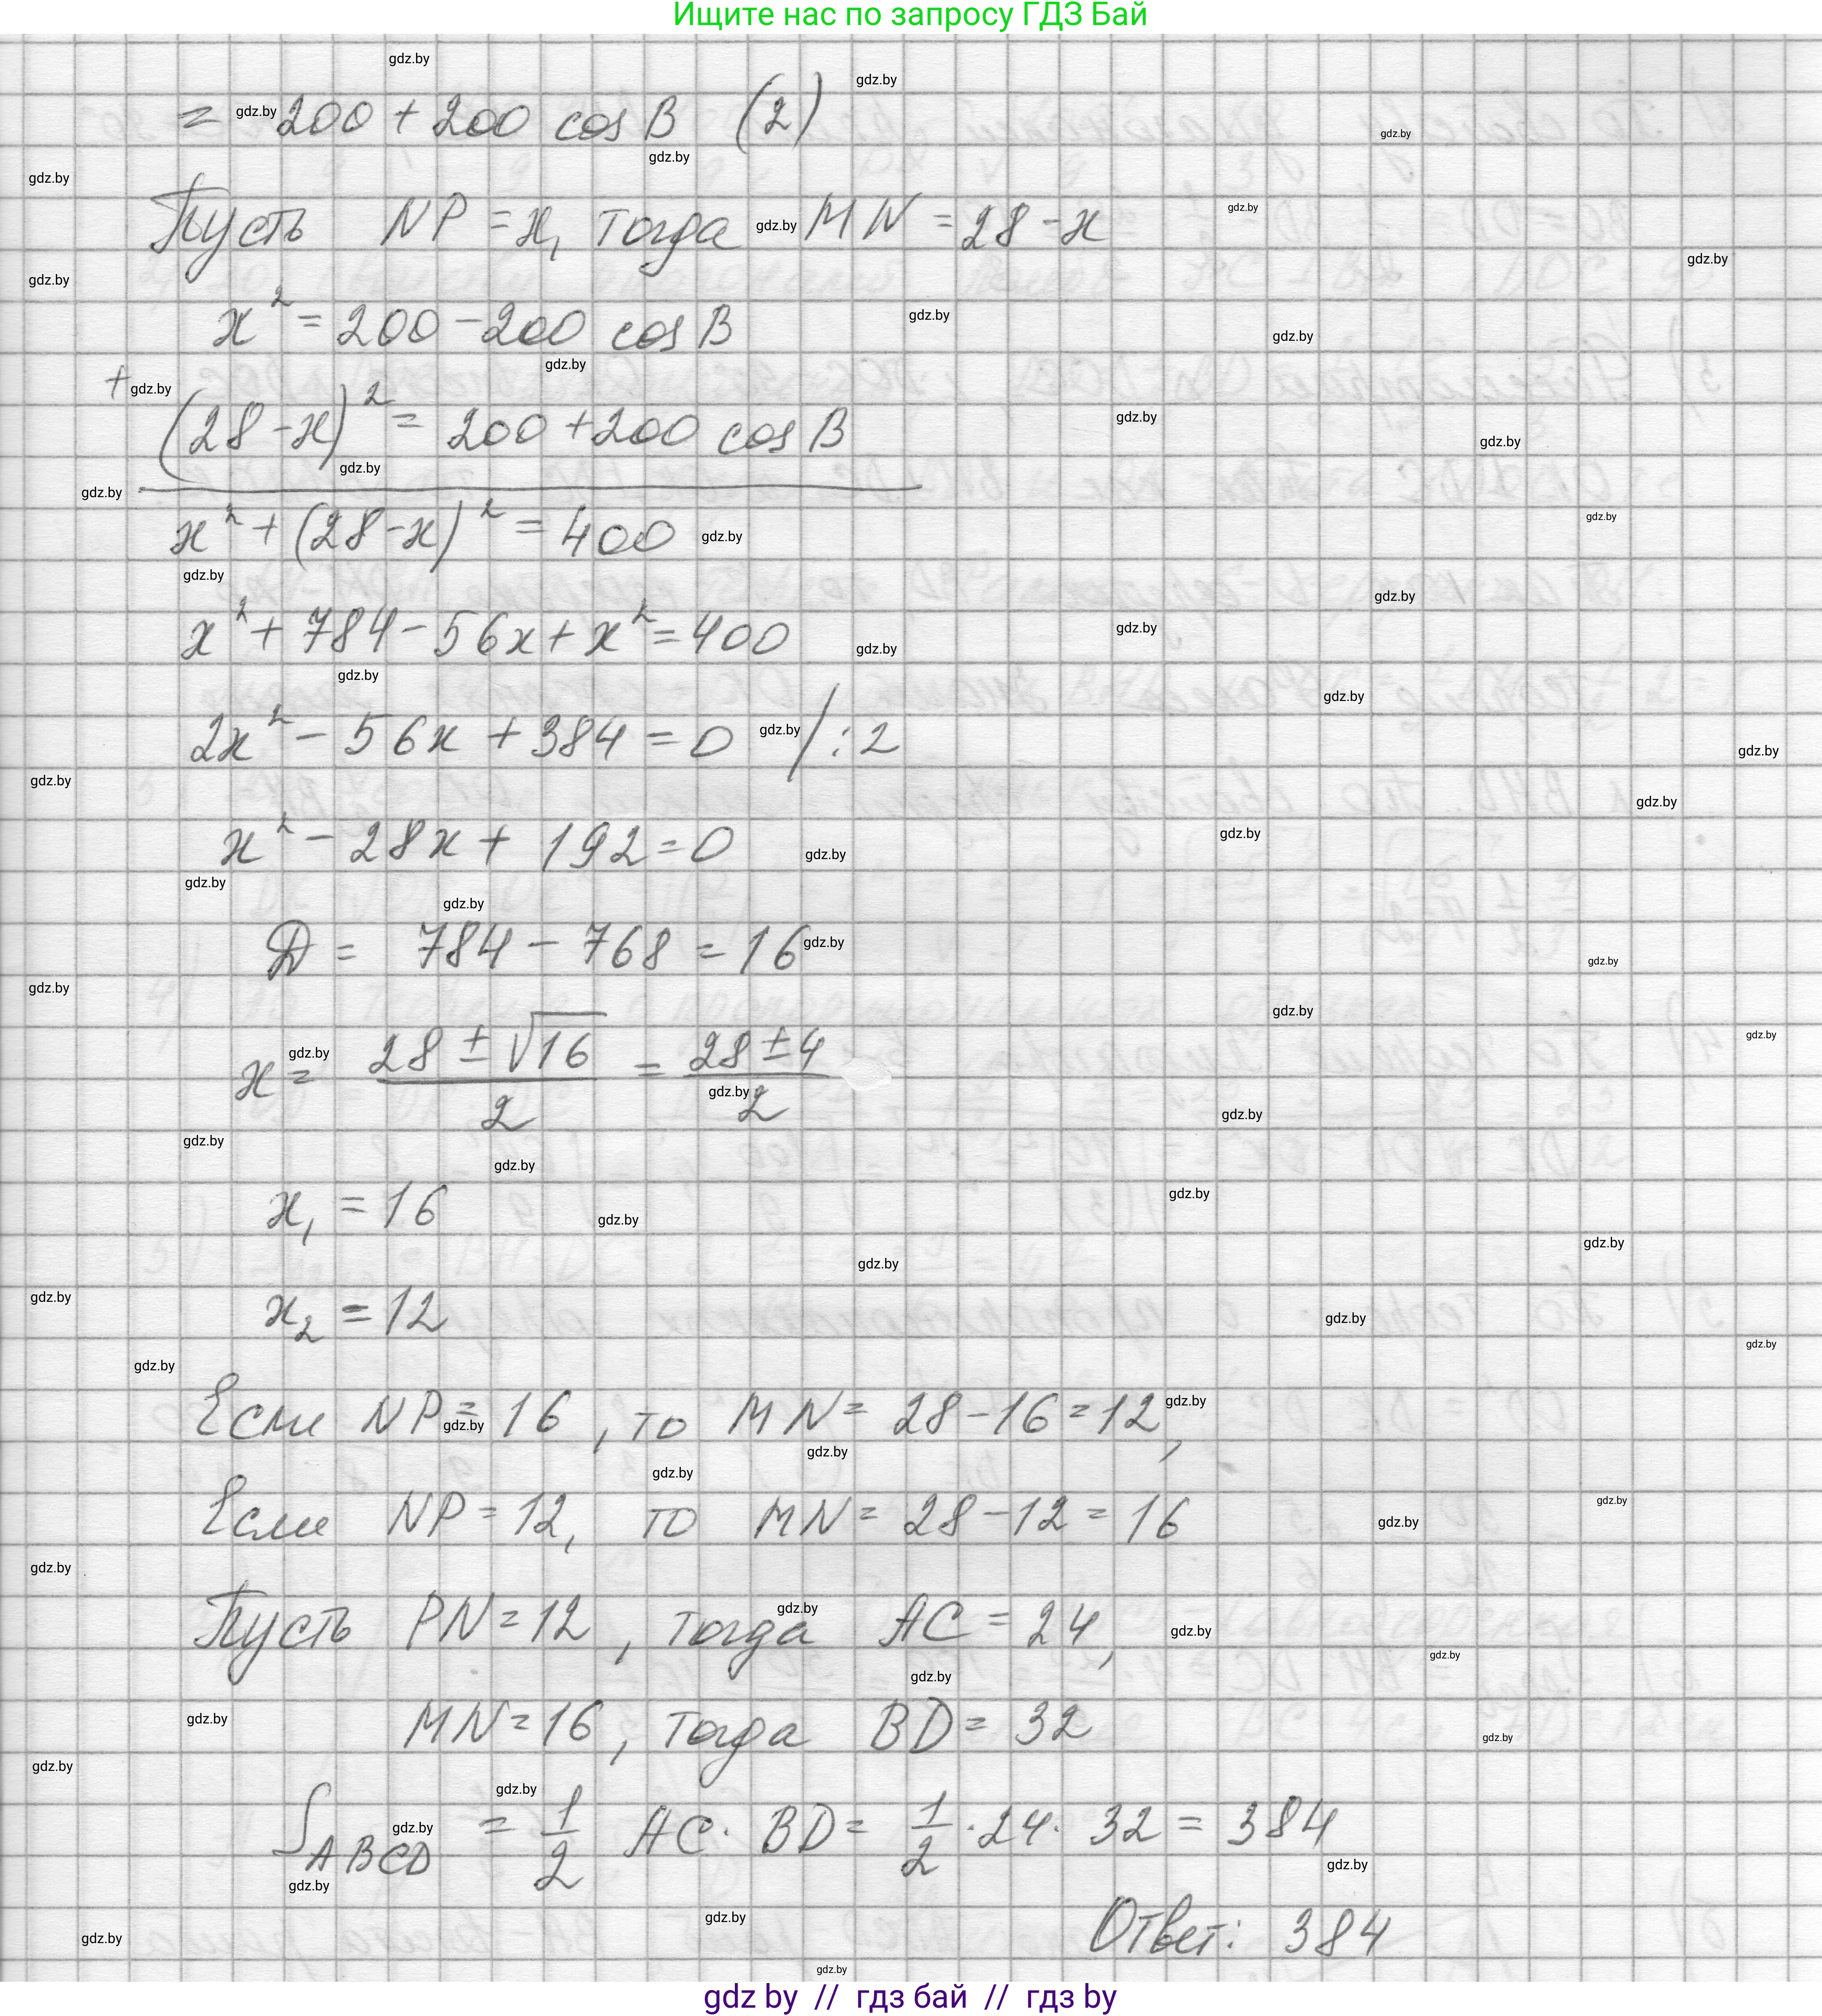 Ищите нас по запросу ГДЗ Бай
= 200 + 200 cos B (2)
Пусть NP = x, тогда MN = 28 - x
x² = 200 - 200 cos B
+
(28 - x)² = 200 + 200 cos B
x² + (28 - x)² = 400
x² + 784 - 56x + x² = 400
2x² - 56x + 384 = 0 / : 2
x² - 28x + 192 = 0
D = 784 - 768 = 16
x = (28 ± √16)/2 = (28 ± 4)/2
x₁ = 16
x₂ = 12
Если NP = 16, то MN = 28 - 16 = 12,
Если NP = 12, то MN = 28 - 12 = 16
Пусть PN = 12, тогда AC = 24,
MN = 16, тогда BD = 32
S ABCD = 1/2 AC · BD = 1/2 · 24 · 32 = 384
Ответ: 384
gdz by // гдз бай // гдз by